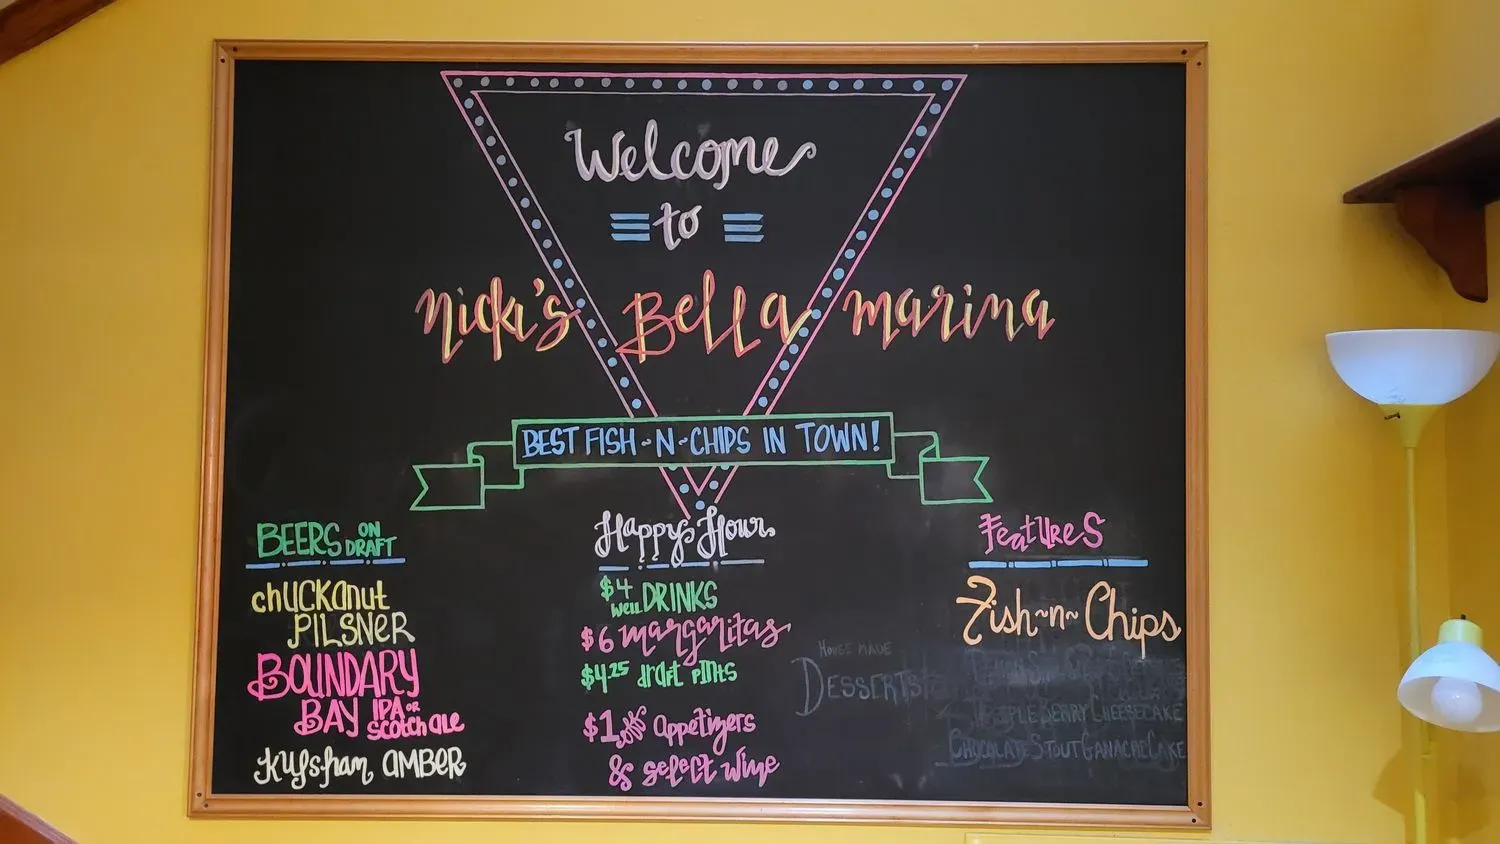 Welcome
to
Nicki's Bella Marina
BEST FISH~N~CHIPS IN TOWN!
BEERS ON DRAFT
chuckanut
PILSNER
BOUNDARY
BAY IPA or Scotch ale
Kulshan AMBER
Happy Hour
$4 well DRINKS
$6 margaritas
$4.25 draft pints
$1 off Appetizers
& select wine
Features
Fish~n~Chips
HOUSE MADE
DESSERTS
TRIPLE BERRY CHEESECAKE
CHOCOLATE STOUT GANACHE CAKE